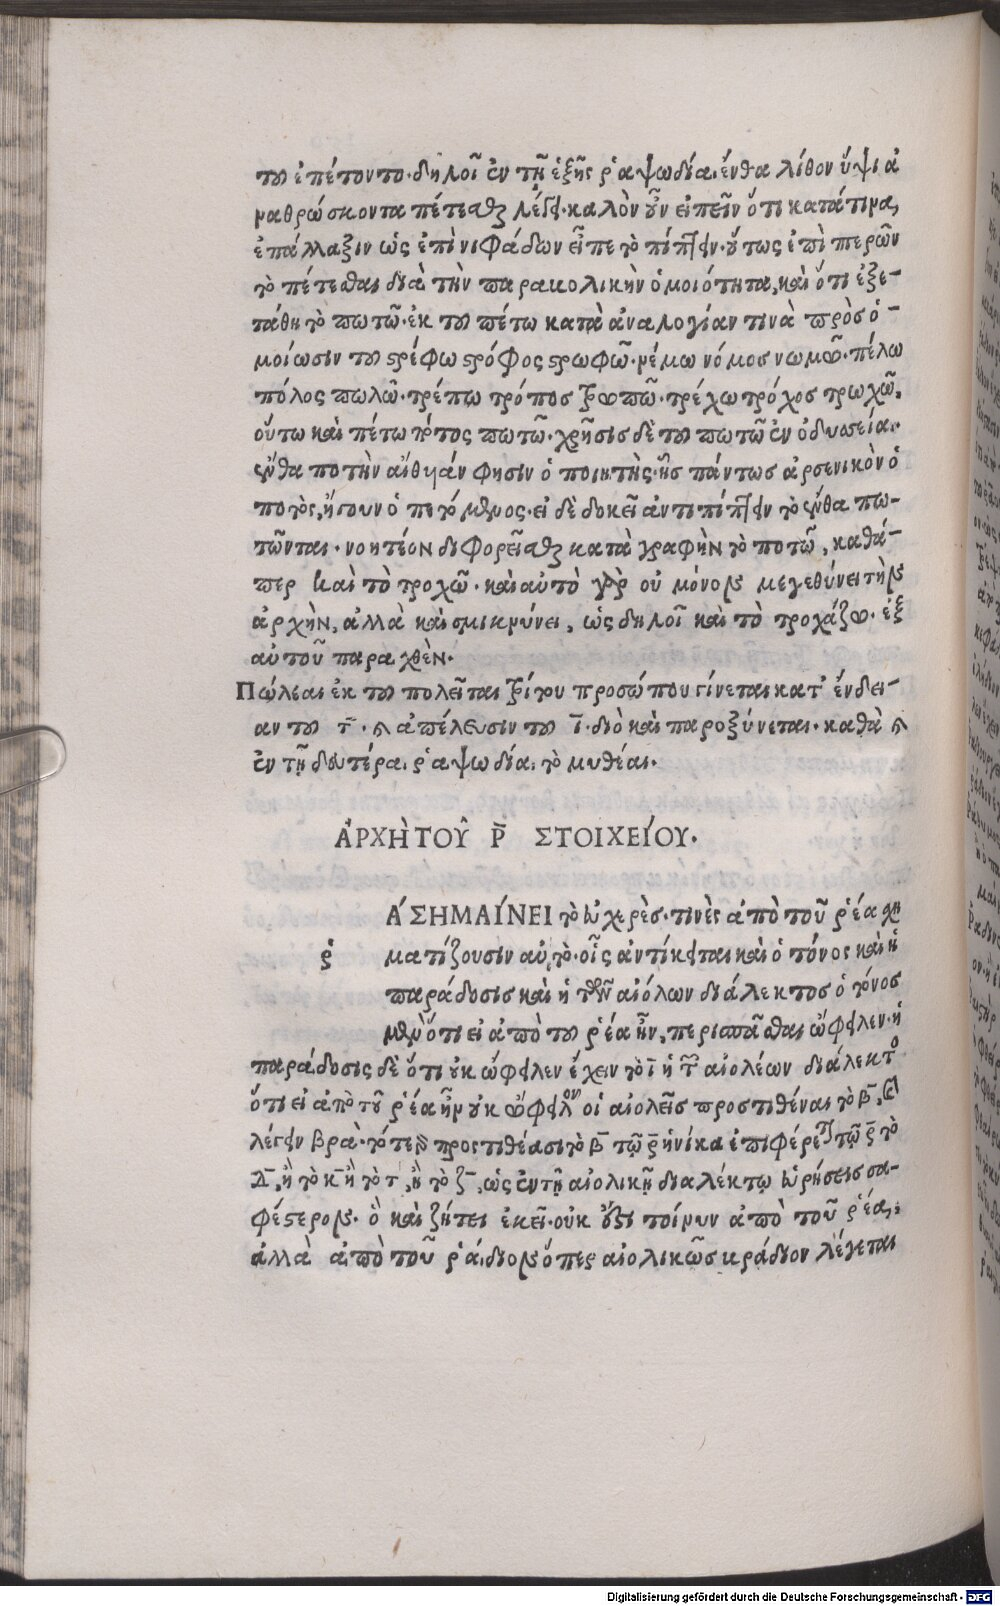 του ἐπέτοντο. δηλοῖ ἐν τῇ ἑξῆς ῥαψωδία. ἔνθα λίθον ὕψι ἀ
μαθρώσκοντα πέτεσθαι λέγει. καλὸν οὖν εἰπεῖν ὅτι κατάτιμα,
ἐπάλλαξιν ὡς ἐπὶ νιφάδων εἶπε τὸ πίπτειν. οὕτως ἐπὶ πτερῶν
τὸ πέτεσθαι διὰ τὴν παρακολικὴν ὁμοιότητα, καὶ ὅτι ἐξε-
τάθη τὸ πωτῶ. ἐκ τοῦ πέτω κατὰ ἀναλογίαν τινὰ πρὸς ὁ-
μοίωσιν τοῦ στρέφω στρόφος στρωφῶ. νέμω νόμος νωμῶ. πέλω
πόλος πωλῶ. τρέπω τρόπος τρωπῶ. τρέχω τρόχος τρωχῶ,
οὕτω καὶ πέτω πότος πωτῶ. χρῆσις δὲ τοῦ πωτῶ ἐν ὀδυσσεία.
ἔνθα ποτὴν αἴθυιάν φησιν ὁ ποιητὴς. ἧς πάντως ἀρσενικὸν ὁ
ποτὸς, ἤγουν ὁ πετόμενος. εἰ δὲ δοκεῖ ἀντιπίπτειν τὸ ἔνθα πω-
τῶνται. νοητέον διφορεῖσθαι κατὰ γραφὴν τὸ ποτῶ, καθά-
περ καὶ τὸ τροχῶ. καὶ αὐτὸ γὰρ οὐ μόνον μεγεθύνει τὴν
ἀρχὴν, ἀλλὰ καὶ σμικρύνει, ὡς δηλοῖ καὶ τὸ τροχάζω. ἐξ
αὐτοῦ παραχθὲν.
Πώλεαι ἐκ τοῦ πολεῖται τρίτου προσώπου γίνεται κατ' ἔνδει-
αν τοῦ τ̄. καὶ ἀπέλευσιν τοῦ ῑ. διὸ καὶ παροξύνεται. καθὰ καὶ
ἐν τῇ δευτέρα. ῥαψωδία. τὸ μυθέαι.
ἈΡΧῊ ΤΟΥ͂ Ρ̄ ΣΤΟΙΧΕΊΟΥ.
ῥ
Ά ΣΗΜΑΊΝΕΙ τὸ εὐχερὲς. τινὲς ἀπὸ τοῦ ῥέα σχη
ματίζουσιν αὐτὸ. οἷς ἀντίκειται καὶ ὁ τόνος καὶ ἡ
παράδοσις καὶ ἡ τῶν αἰόλων διάλεκτος ὁ τόνος
μὲν ὅτι εἰ ἀπὸ τοῦ ῥέα ἦν, περισπᾶσθαι ὤφειλεν. ἡ
παράδοσις δὲ ὅτι οὐκ ὤφειλεν ἔχειν τὸ ῑ ἡ τῶν αἰολέων διάλεκτο
ὅτι εἰ ἀπὸ τοῦ ῥέα ἦν οὐκ ὤφειλον οἱ αἰολεῖς προστιθέναι τὸ β̄, καὶ
λέγειν βρα. τότε γὰρ προστιθέασι τὸ β̄ τῷ ρ̄ ἡνίκα ἐπιφέρεται τῷ ρ̄ τὸ
Δ̄, ἢ τὸ κ̄ ἢ τὸ τ̄, ἢ τὸ ζ̄, ὡς ἐν τῇ αἰολικῇ διαλέκτῳ εὑρήσεις σα-
φέστερον. ὃ καὶ ζήτει ἐκεῖ. οὐκ ἔστι τοίνυν ἀπὸ τοῦ ῥέα,
ἀλλὰ ἀπὸ τοῦ ῥά. διον ὅπερ αἰολικῶς κράδιον λέγεται
Digitalisierung gefördert durch die Deutsche Forschungsgemeinschaft - DFG